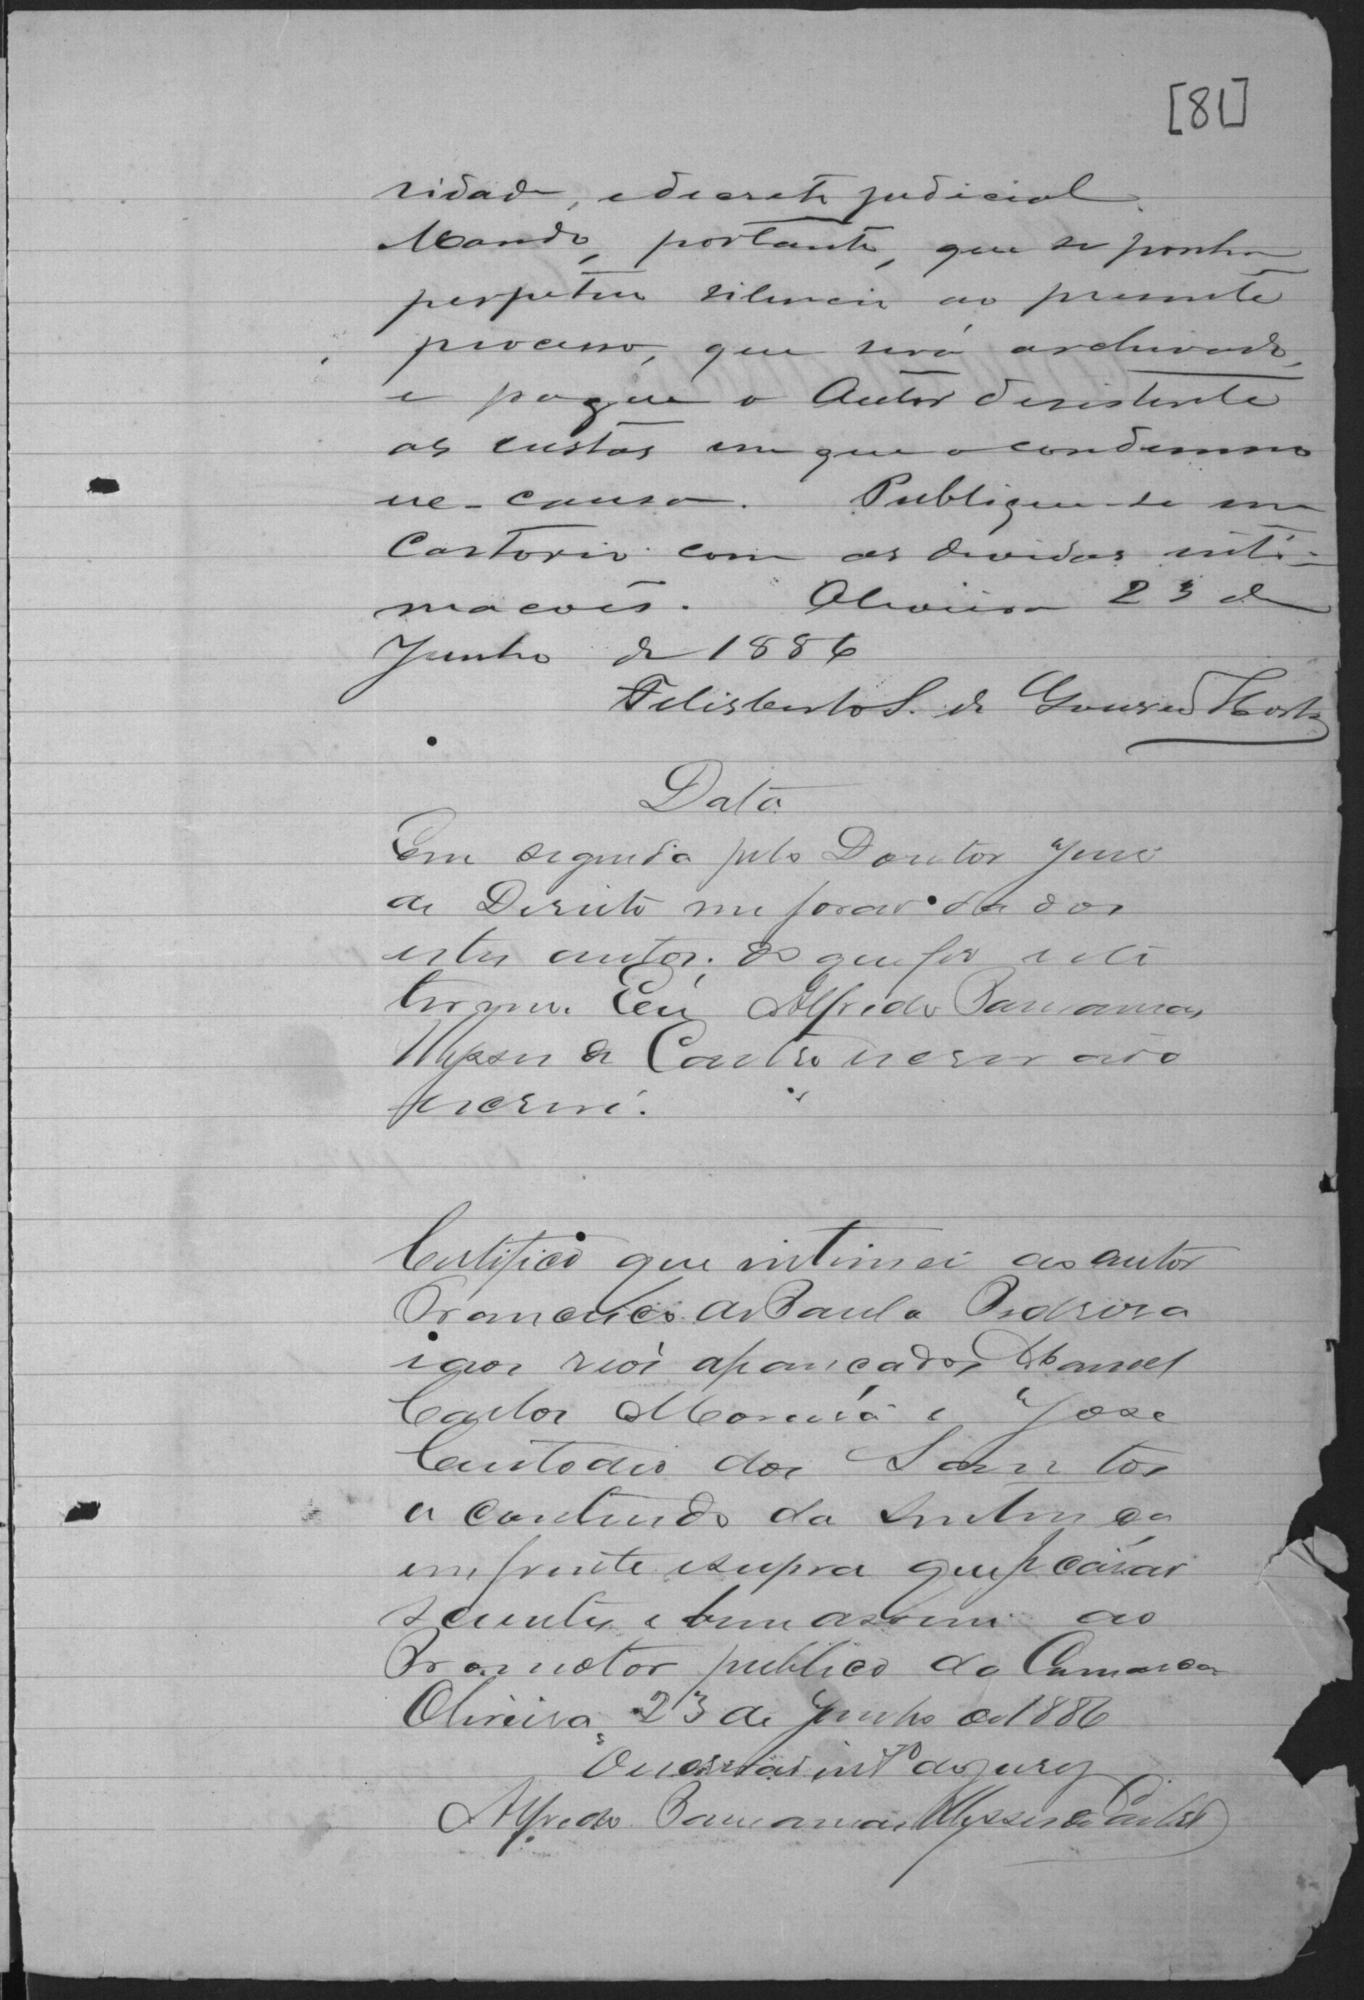 [81]
ridade, e decreto judicial.
Mando, portanto, que se ponha
perpetuo silencio ao presente
processo, que será archivado,
e pague o Autor desistente
as custas em que o condemno
Publique-se em
Cartorio com as devidas inti-
macoẽs. Oliveira 23 de
Junho de 1886
Felisberto S. de Gouvea Horta
Data
Em seguida pelo Doutor Juis
de Direito me forão dados
estes autos; do que fis este
termo. Eu Alfredo
Ulysses de Castro escrivão
escrevi.
Certifico que intimei ao autor
Francisco de Paula Pedrosa
e aos reos afiançados Manoel
Carlos Moreira e José
Custodio dos Santos
o conteudo da sentença
em frente e supra que ficárão
scientes e bem assim ao
Promotor publico da Comarca
Oliveira 23 de Junho de 1886
O escrivão intº do jury
Alfredo Ulysses de Castro